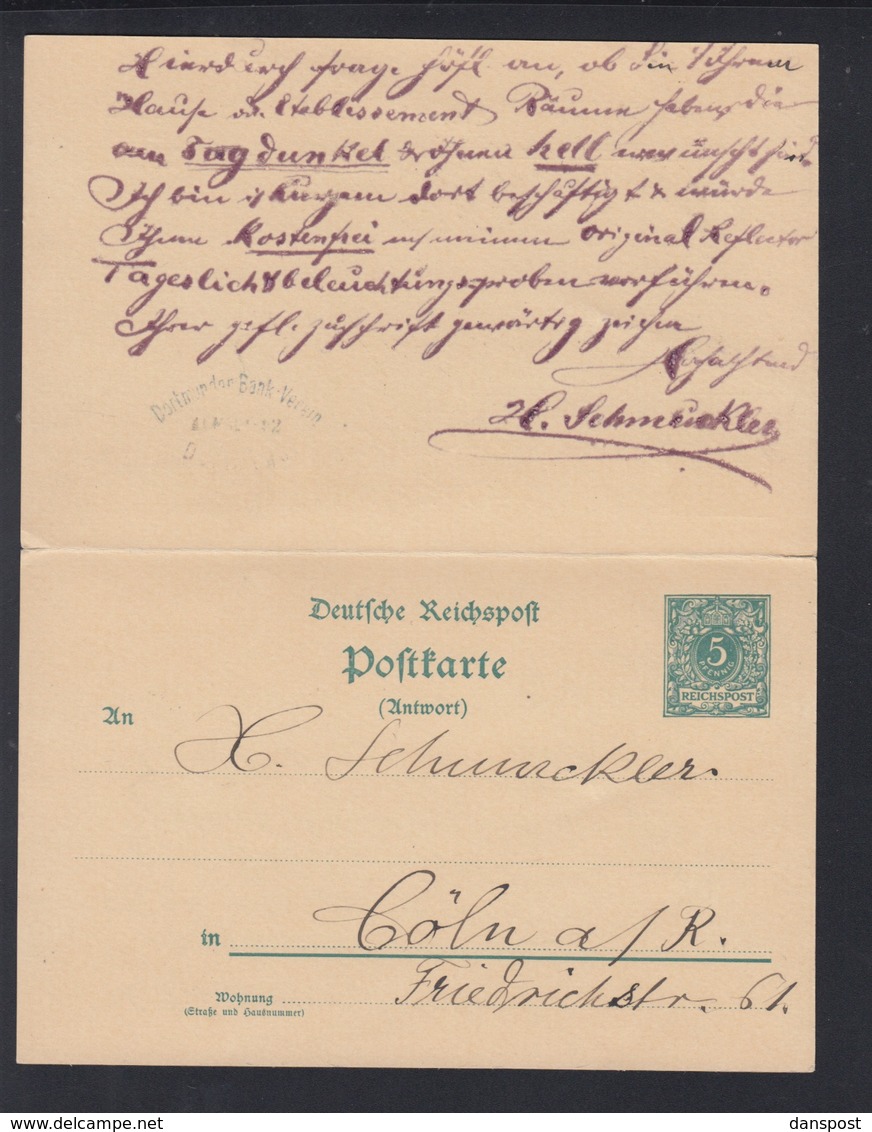 Hierdurch frage höfl an, ob Sie in Ihrem
Hause od. Etablissement Räume haben, die
am Tag dunkel & Ihnen hell erwünscht sind.
Ich bin in Kurzem dort beschäftigt & würde
Ihnen Kostenfrei mit meinem original Reflector
Tageslichtbeleuchtungsproben vorführen.
Ihrer gefl. Zuschrift gewärtig zeichne
Hochachtend
H. Schmuckler
Dortmunder Bank-Verein
Deutsche Reichspost
Postkarte
(Antwort)
5
PFENNIG
REICHSPOST
An H. Schmuckler
in Cöln a/R.
Wohnung Friedrichstr. 61.
(Straße und Hausnummer)
delcampe.net
danspost